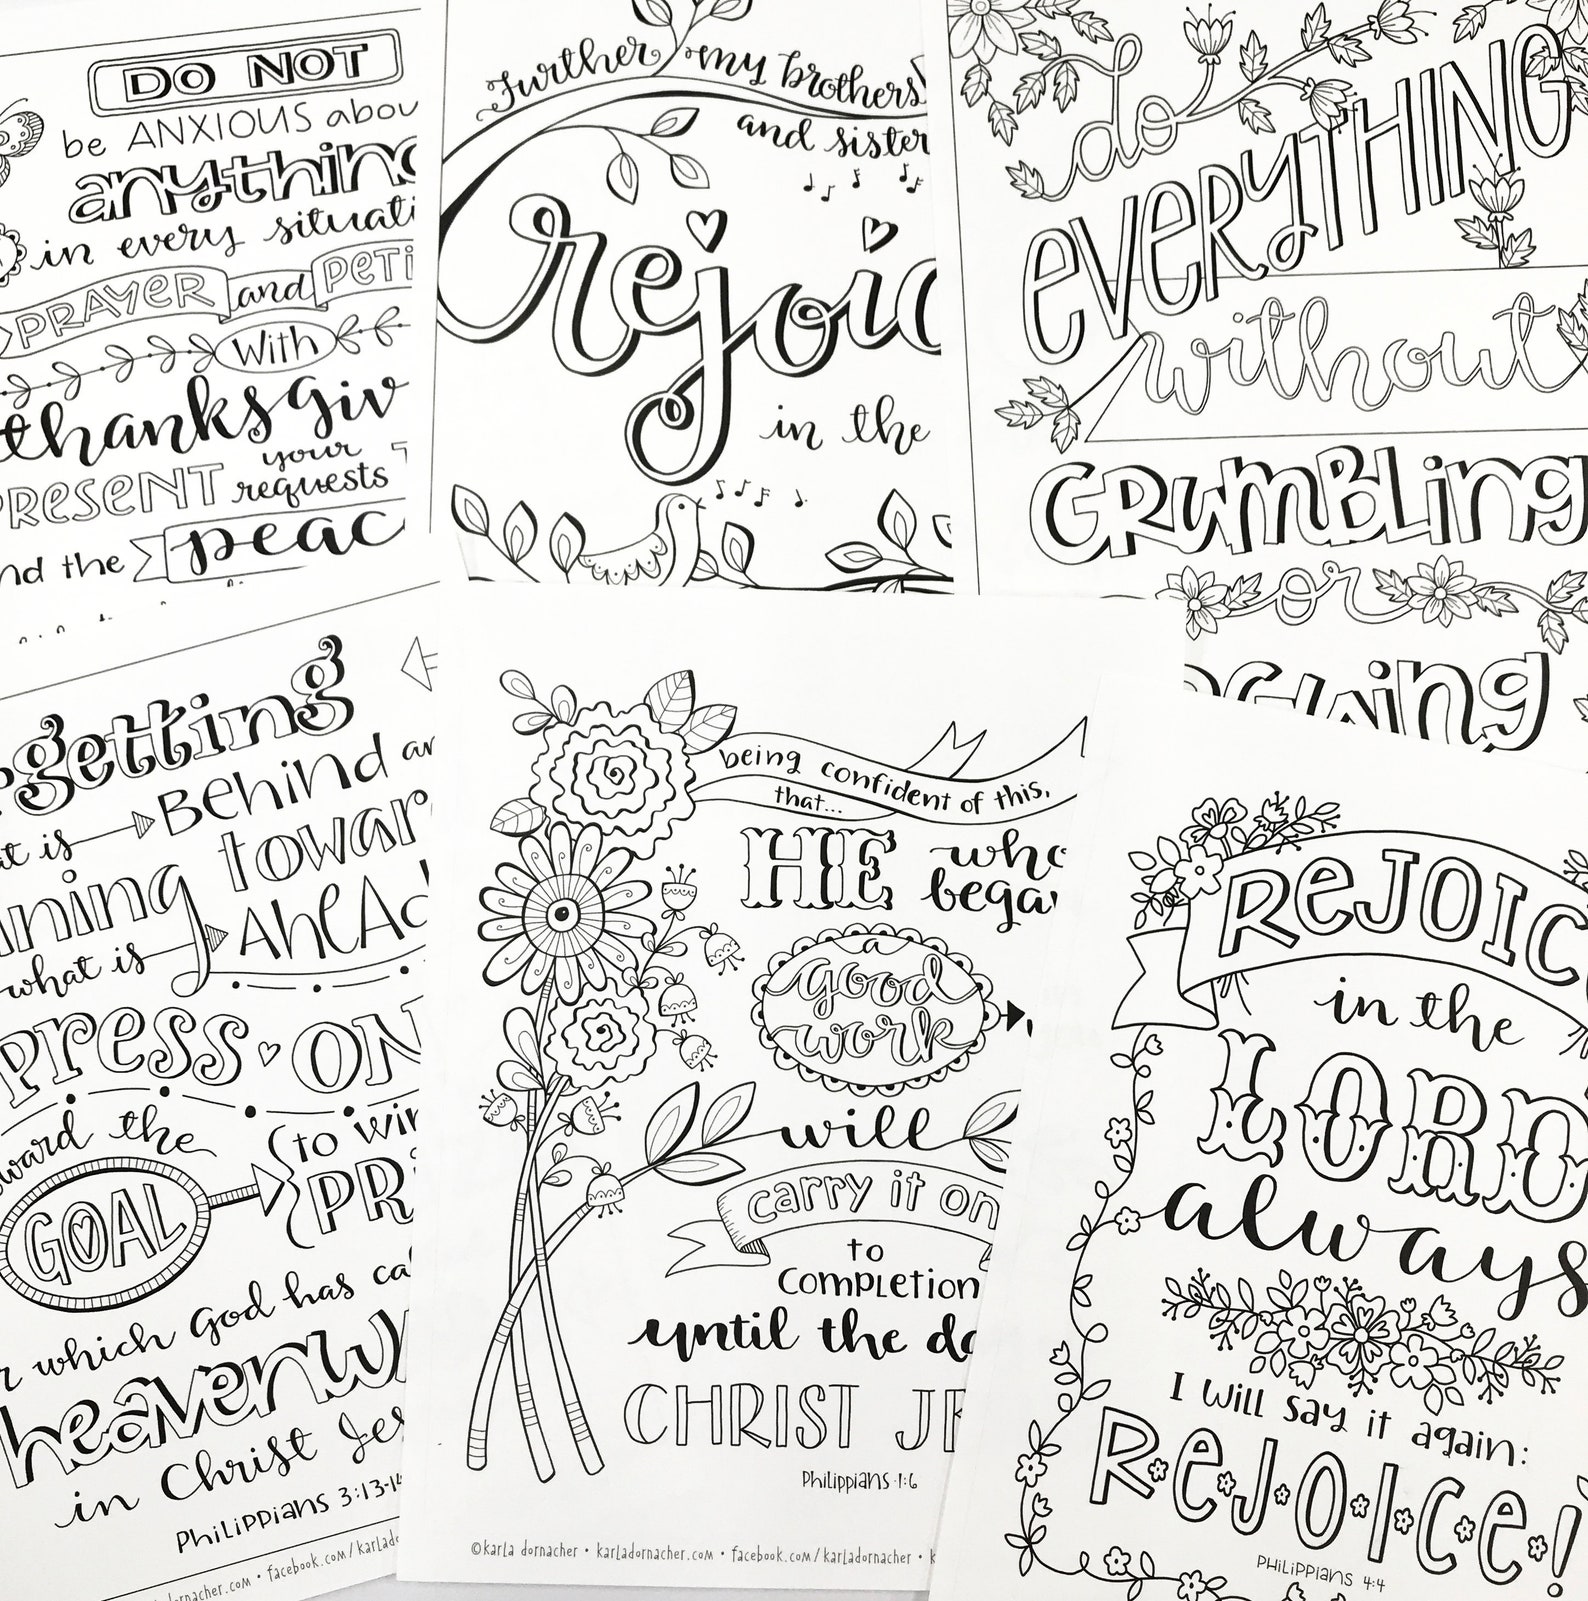 DO NOT
be ANXIOUS abou
anything
in every situati
PRAYER and PETI
With
thanksgiv
PRESENT your requests
nd the peac
Further my brothers
and sister
rejoic
in the
do
EVERYTHING
without
GRUMBLING
or
getting
at is BEHIND an
ning towar
what is AHEAD
PRESS ON
ward the
GOAL
to win
PRI
r which God has ca
heavenw
in Christ Jes
PHILIPPIANS 3:13-14
dornacher.com • facebook.com/karlado
being confident of this,
that...
HE who
began
a
good
work
will
carry it on
to
completion
until the da
CHRIST JE
PHILIPPIANS 1:6
©karla dornacher • karladornacher.com • facebook.com/karladornacher •
REJOIC
in the
LORD
always
I will say it again:
REJOICE!
PHILIPPIANS 4:4